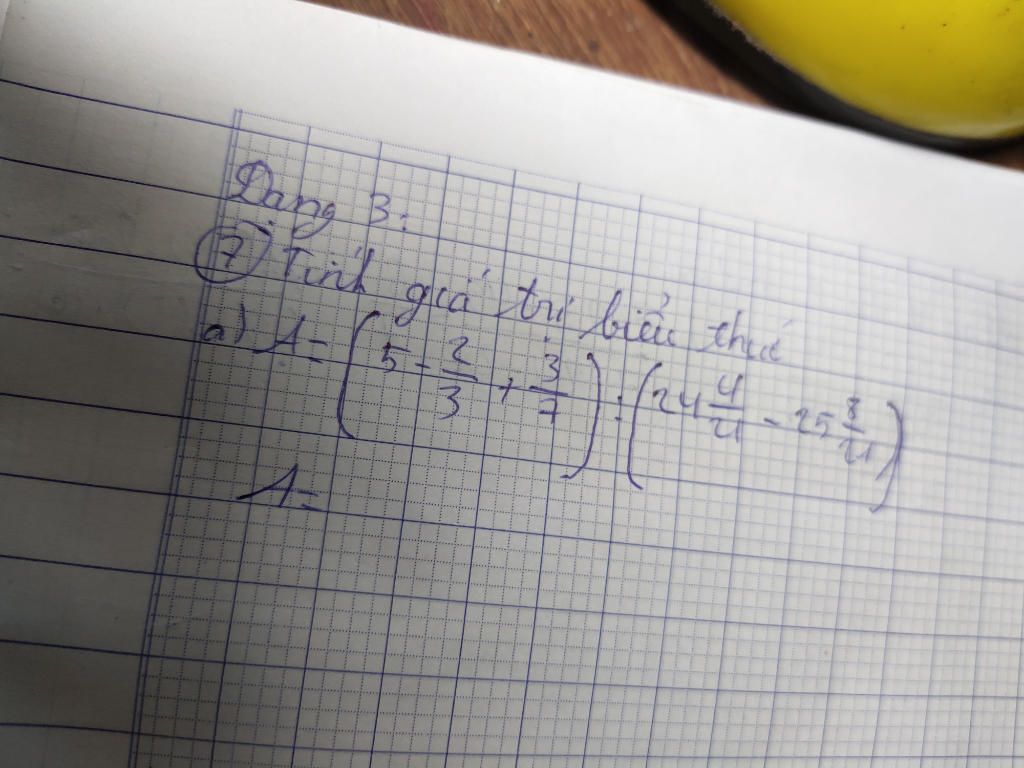 Dạng 3:
7 Tính giá trị biểu thức
a) A = (5 - 2/3 + 3/7) : (24 4/21 - 25 8/21)
A =